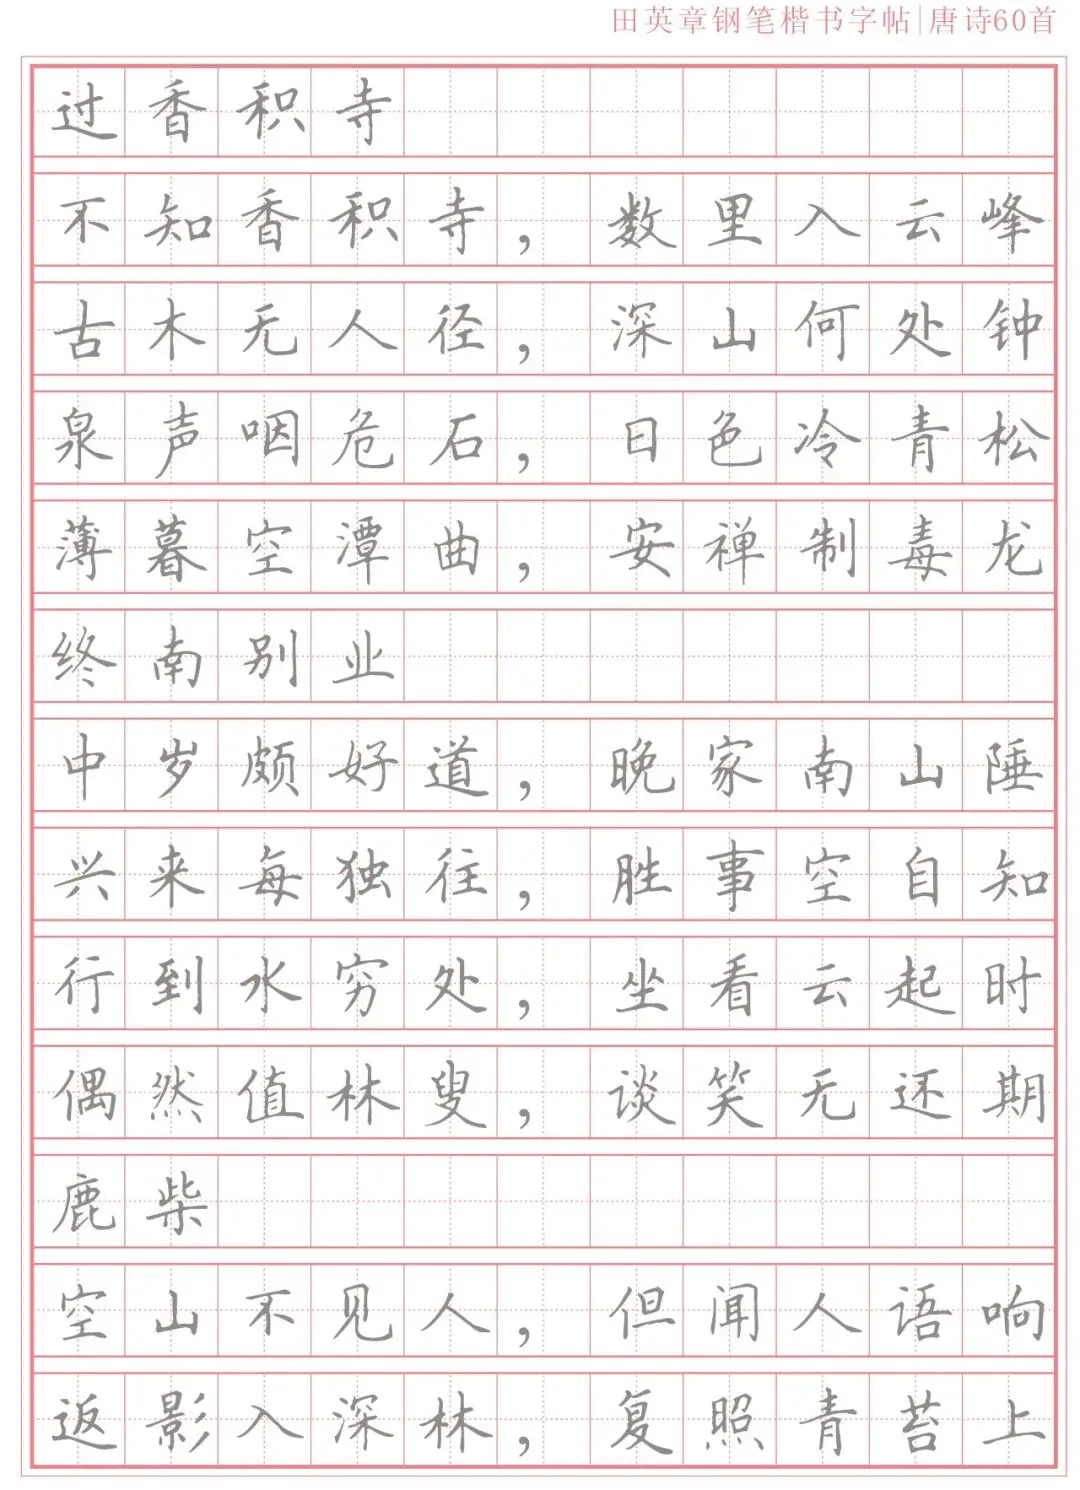 田英章钢笔楷书字帖|唐诗60首
过香积寺
不知香积寺，数里入云峰
古木无人径，深山何处钟
泉声咽危石，日色冷青松
薄暮空潭曲，安禅制毒龙
终南别业
中岁颇好道，晚家南山陲
兴来每独往，胜事空自知
行到水穷处，坐看云起时
偶然值林叟，谈笑无还期
鹿柴
空山不见人，但闻人语响
返影入深林，复照青苔上